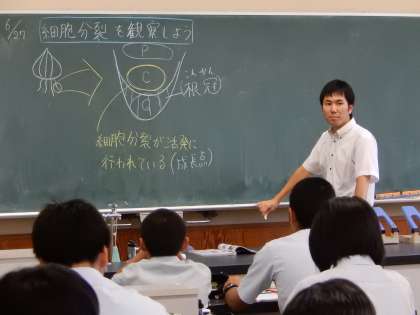 6/27
細胞分裂を観察しよう
P
C
G
こんかん
(根冠)
細胞分裂が活発に
行われている(成長点)